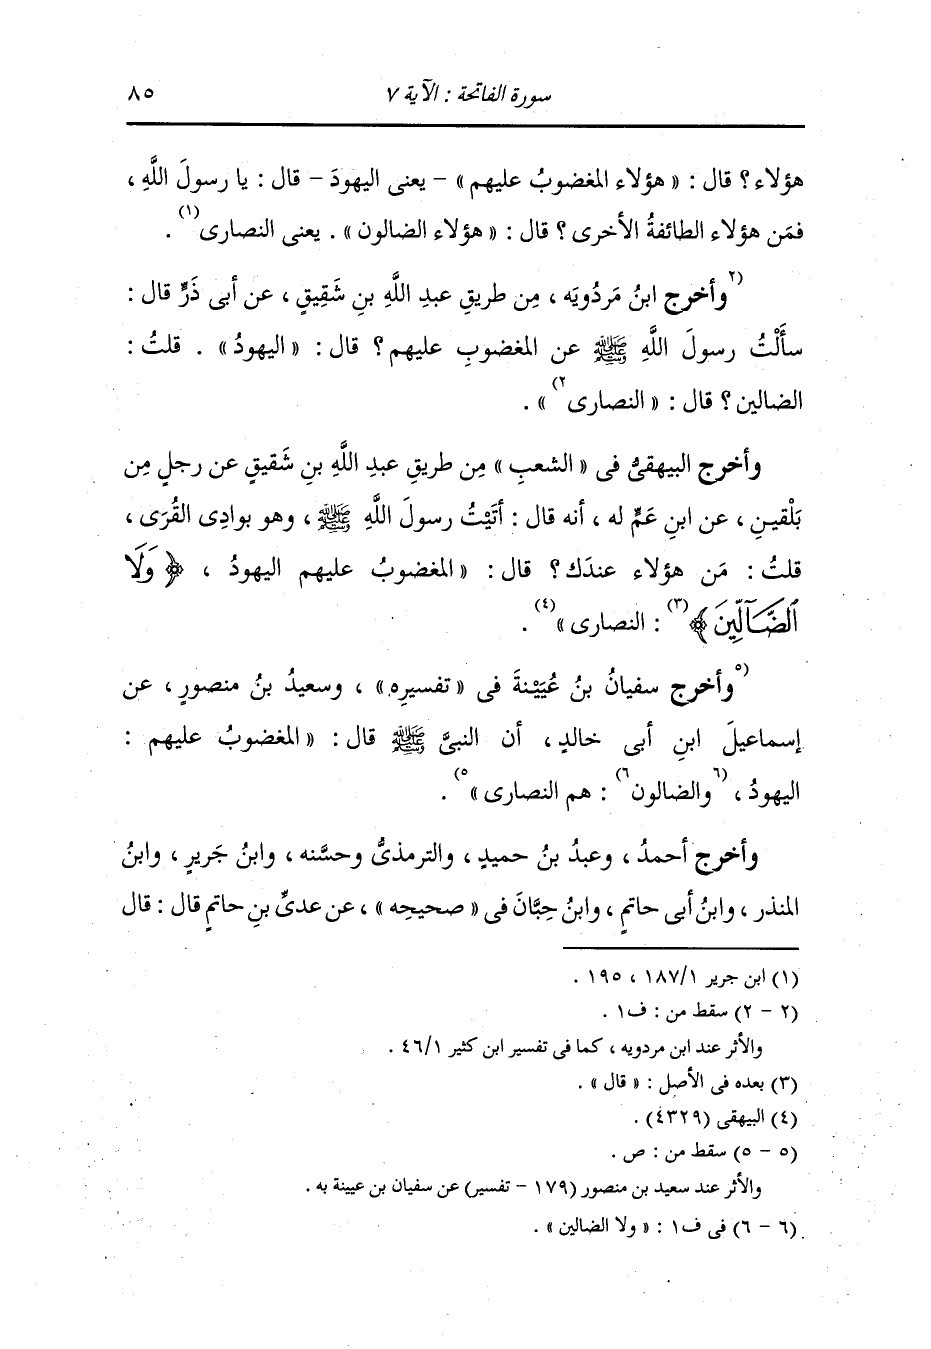 سورة الفاتحة : الآية ٧
٨٥
هؤلاء ؟ قال : « هؤلاء المغضوبُ عليهم » – يعنى اليهودَ – قال : يا رسولَ اللَّهِ ،
فمَن هؤلاء الطائفةُ الأخرى ؟ قال : « هؤلاء الضالون » . يعنى النصارى(١) .
(٢وأخرج ابنُ مَردُويَه ، مِن طريقِ عبدِ اللَّهِ بنِ شَقِيقٍ ، عن أبى ذَرٍّ قال :
سأَلْتُ رسولَ اللَّهِ ﷺ عن المغضوبِ عليهم ؟ قال : « اليهودُ » . قلتُ :
الضالين ؟ قال : « النصارى٢) » .
وأخرج البيهقىُّ فى « الشعبِ » مِن طريقِ عبدِ اللَّهِ بنِ شَقيقٍ عن رجلٍ مِن
بَلْقينِ ، عن ابنِ عَمٍّ له ، أنه قال : أتَيْتُ رسولَ اللَّهِ ﷺ ، وهو بوادِى القُرَى ،
قلتُ : مَن هؤلاء عندَك ؟ قال : « المغضوبُ عليهم اليهودُ ، ﴿ وَلَا
ٱلضَّآلِّينَ ﴾(٣) : النصارى »(٤) .
(٥وأخرج سفيانُ بنُ عُيَيْنةَ فى « تفسيرِه » ، وسعيدُ بنُ منصورٍ ، عن
إسماعيلَ ابنِ أبى خالدٍ ، أن النبىَّ ﷺ قال : « المغضوبُ عليهم :
اليهودُ ، (٦والضالون٦) : هم النصارى »٥) .
وأخرج أحمدُ ، وعبدُ بنُ حميدٍ ، والترمذىُّ وحسَّنه ، وابنُ جَريرٍ ، وابنُ
المنذر ، وابنُ أبى حاتمٍ ، وابنُ حِبَّانَ فى « صحيحِه » ، عن عدىِّ بنِ حاتمٍ قال : قال
(١) ابن جرير ١/١٨٧ ، ١٩٥ .
(٢ – ٢) سقط من : ف١ .
والأثر عند ابن مردويه ، كما فى تفسير ابن كثير ١/٤٦ .
(٣) بعده فى الأصل : « قال » .
(٤) البيهقى (٤٣٢٩) .
(٥ – ٥) سقط من : ص .
والأثر عند سعيد بن منصور (١٧٩ – تفسير) عن سفيان بن عيينة به .
(٦ – ٦) فى ف١ : « ولا الضالين » .